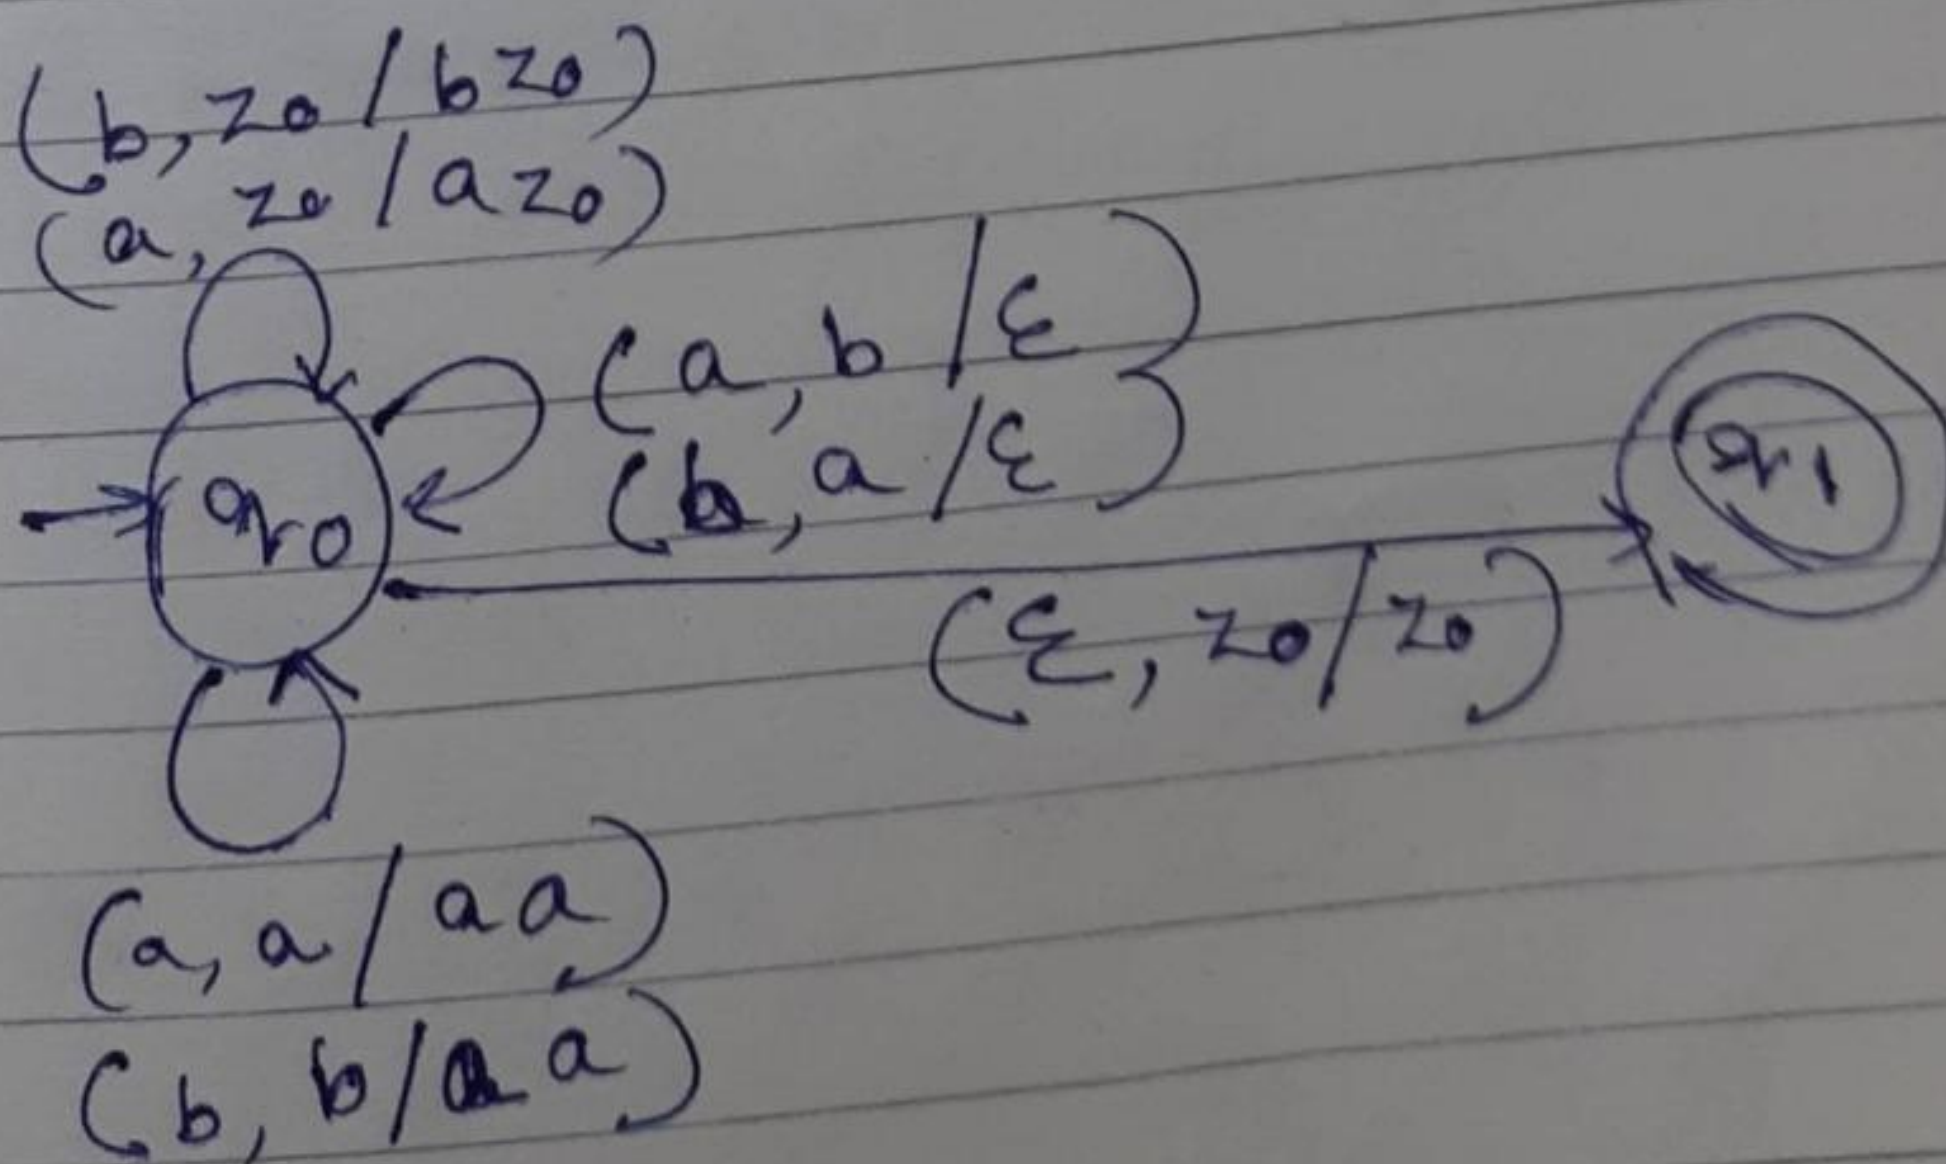 (b, z0 / bz0)
(a, z0 / az0)
(a, b / ε)
(b, a / ε)
q0
q1
(ε, z0 / z0)
(a, a / aa)
(b, b / aa)